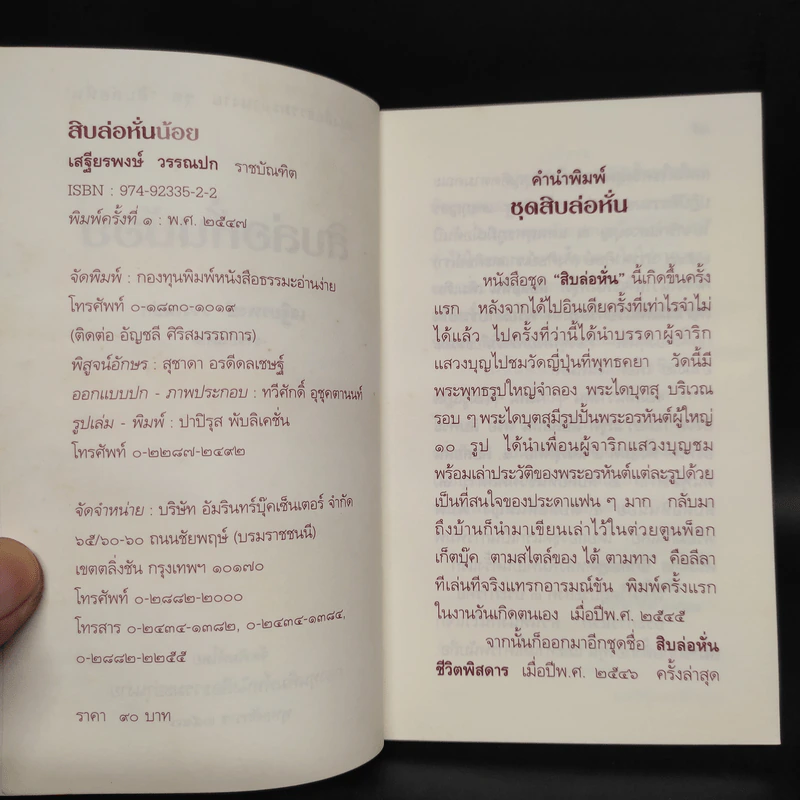 สิบล่อหั่นน้อย
เสฐียรพงษ์ วรรณปก ราชบัณฑิต
ISBN : 974-92335-2-2
พิมพ์ครั้งที่ ๑ : พ.ศ. ๒๕๔๗
จัดพิมพ์ : กองทุนพิมพ์หนังสือธรรมะอ่านง่าย
โทรศัพท์ ๐-๑๘๓๐-๑๐๑๙
(ติดต่อ อัญชลี ศิริสมรรถการ)
พิสูจน์อักษร : สุชาดา อรดีดลเชษฐ์
ออกแบบปก - ภาพประกอบ : ทวีศักดิ์ อุชุคตานนท์
รูปเล่ม - พิมพ์ : ปาปิรุส พับลิเคชั่น
โทรศัพท์ ๐-๒๒๘๗-๒๔๙๒
จัดจำหน่าย : บริษัท อัมรินทร์บุ๊คเซ็นเตอร์ จำกัด
๖๕/๖๐-๖๐ ถนนชัยพฤษ์ (บรมราชชนนี)
เขตตลิ่งชัน กรุงเทพฯ ๑๐๑๗๐
โทรศัพท์ ๐-๒๘๘๒-๒๐๐๐
โทรสาร ๐-๒๔๓๔-๑๓๘๒, ๐-๒๔๓๔-๑๓๘๔,
๐-๒๘๘๒-๒๒๕๕
ราคา ๙๐ บาท
คำนำพิมพ์
ชุดสิบล่อหั่น
หนังสือชุด “สิบล่อหั่น” นี้เกิดขึ้นครั้ง
แรก หลังจากได้ไปอินเดียครั้งที่เท่าไรจำไม่
ได้แล้ว ไปครั้งที่ว่านี้ได้นำบรรดาผู้จาริก
แสวงบุญไปชมวัดญี่ปุ่นที่พุทธคยา วัดนี้มี
พระพุทธรูปใหญ่จำลอง พระไดบุตสุ บริเวณ
รอบ ๆ พระไดบุตสุมีรูปปั้นพระอรหันต์ผู้ใหญ่
๑๐ รูป ได้นำเพื่อนผู้จาริกแสวงบุญชม
พร้อมเล่าประวัติของพระอรหันต์แต่ละรูปด้วย
เป็นที่สนใจของประดาแฟน ๆ มาก กลับมา
ถึงบ้านก็นำมาเขียนเล่าไว้ในต่วยตูนพ็อก
เก็ตบุ๊ค ตามสไตล์ของ ไต้ ตามทาง คือลีลา
ทีเล่นทีจริงแทรกอารมณ์ขัน พิมพ์ครั้งแรก
ในงานวันเกิดตนเอง เมื่อปีพ.ศ. ๒๕๔๕
จากนั้นก็ออกมาอีกชุดชื่อ สิบล่อหั่น
ชีวิตพิสดาร เมื่อปีพ.ศ. ๒๕๔๖ ครั้งล่าสุด